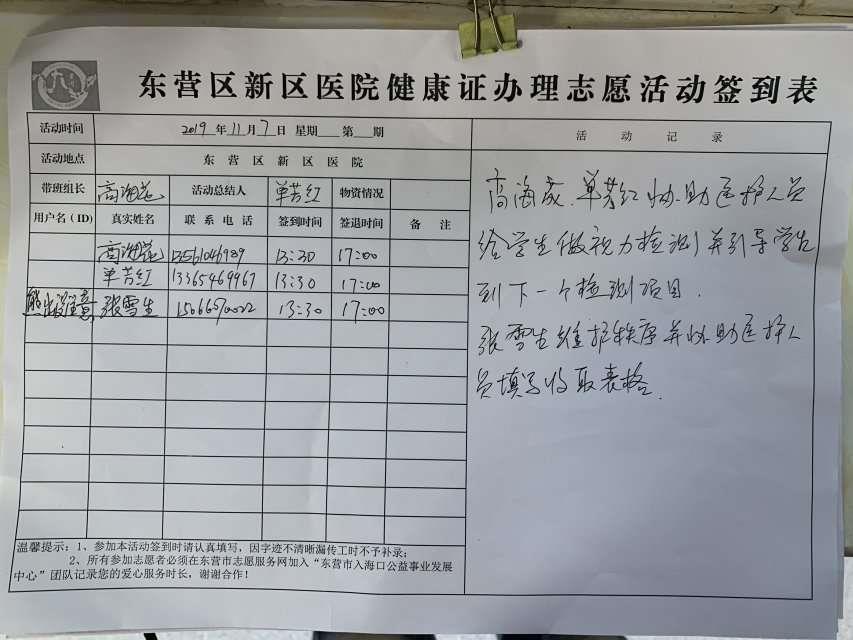 东营区新区医院健康证办理志愿活动签到表
活动时间 2019年11月7日 星期 第 期
活动地点 东营区新区医院
带班组长 高海花 活动总结人 单芳红 物资情况
用户名(ID) 真实姓名 联系电话 签到时间 签退时间 备注
高海花 13561046989 13:30 17:00
单芳红 13365469967 13:30 17:00
熊出没注意 张雪生 13:30 17:00
温馨提示:1、参加本活动签到时请认真填写,因字迹不清晰漏传工时不予补录;
2、所有参加志愿者必须在东营市志愿服务网加入“东营市入海口公益事业发展
中心”团队记录您的爱心服务时长,谢谢合作!
活动记录
高海花、单芳红协助医护人员
给学生做视力检测并引导学生
到下一个检测项目.
张雪生维护秩序并协助医护人
员填写收取表格.